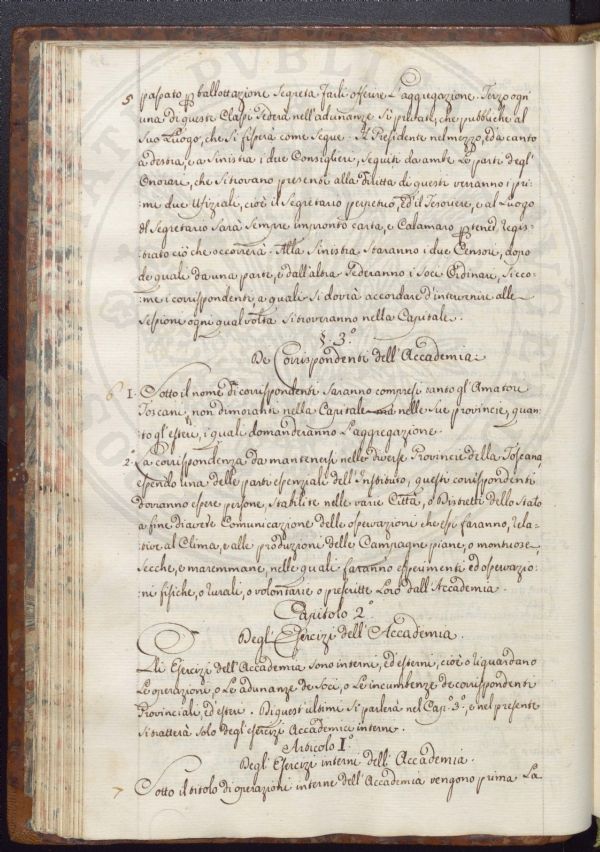 5 passato p ballottazione Segreta farli offerire L'aggregazione. Terzo ogn'
una di queste Classi Sederà nell'adunanze Si private, che pubbliche al
Suo Luogo, che Si fisserà come Segue. Il Presidente nel mezzo, ed'a canto
a destra, e a Sinistra i due Consiglieri, Seguiti da ambe Le parti degl'
Onorari, che Si trovano presenti alla diritta di questi verranno i pri:
:mi due Ufiziali, cioè il Segretario perpetuo, ed'il Tesoriere, e al Luogo
del Segretario Sarà Sempre in pronto carta, e Calamaro p tener Regis:
:trato ciò che occorrerà. Alla Sinistra Staranno i due Censori, dopo
de quali da una parte, e dall'altra Sederanno i Soci Ordinari, Sicco:
:me i corrispondenti, a quali Si dovrà accordare d'intervenire alle
Sessioni ogni qual volta Si troveranno nella Capitale.
§. 3.°
De Corrispondenti dell'Accademia
6 1. Sotto il nome di corrispondenti Saranno compresi tanto gl'Amatori
Toscani, non dimoranti nella Capitale nelle Sue provincie, quan:
:to gl'esteri, i quali domanderanno L'aggregazione.
2. La corrispondenza da mantenersi nelle diverse Provincie della Toscana
essendo una delle parti essenziali dell'Instituto, questi corrispondenti
dovranno essere persone Stabilite nelle varie Città, o Distretti dello Stato
a fine di avere Comunicazione delle osservazioni che essi faranno, rela:
:tive al Clima, e alle produzioni delle Campagne piane, o montuose,
Secche, o maremmane, nelle quali faranno esperimenti ed osservazio:
:ni fisiche, o rurali, o volontarie o prescritte Loro dall'Accademia.
Capitolo 2°.
Degl'Esercizi dell'Accademia.
Gli Esercizi dell'Accademia sono interni, ed'esterni, cioè o riguardano
Le operazioni, o Le adunanze de Soci, o Le incumbenze de corrispondenti
Provinciali, ed esteri. Di quest'ultimi Si parlerà nel Cap.° 3.°, e nel presente
Si tratterà Solo degl'esercizi Accademici interni.
Articolo I.°
Degl'Esercizi interni dell'Accademia.
7 Sotto il titolo di operazioni interne dell'Accademia vengono prima La